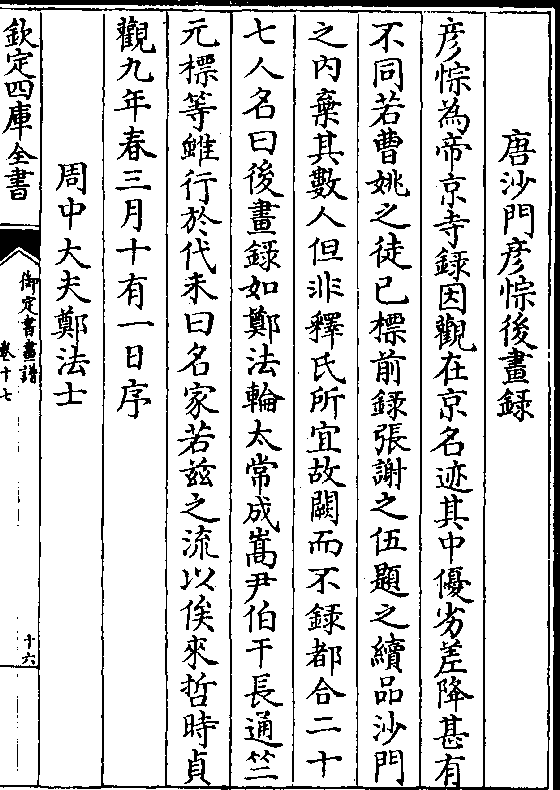 唐沙門彦悰後畫録
彦悰為帝京寺録因觀在京名迹其中優劣差降甚有
不同若曹姚之徒已標前録張謝之伍題之續品沙門
之内棄其數人但非釋氏所宜故闕而不録都合二十
七人名曰後畫録如鄭法輪太常成嵩尹伯干長通竺
元標等雖行於代未曰名家若兹之流以俟來哲時貞
觀九年春三月十有一日序
周中大夫鄭法士
欽定四庫全書
御定書畫譜
卷十七
十六